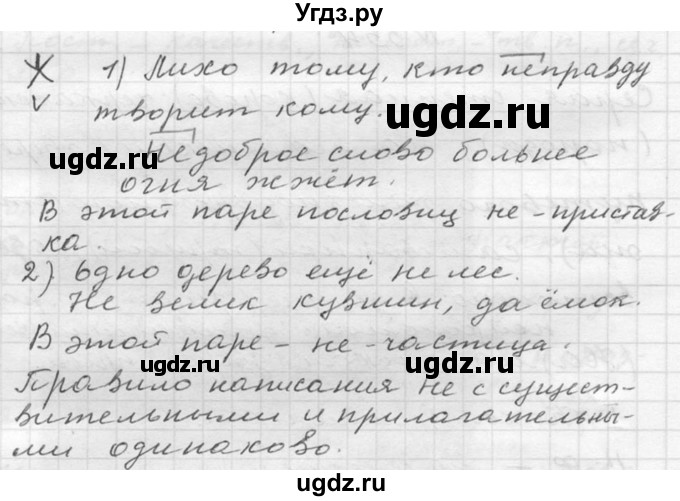 Угдз.ру
1) Лихо тому, кто неправду
творит кому.
Недоброе слово больнее
огня жжёт.
В этой паре пословиц не - пристав-
ка.
2) Одно дерево ещё не лес.
Не велик кувшин, да ёмок.
В этой паре - не - частица.
Правило написания не с сущест-
вительными и прилагательны-
ми одинаково.
ugdz.ru
ugdz.ru
ugdz.ru
ugdz.ru
ugdz.ru
ugdz.ru